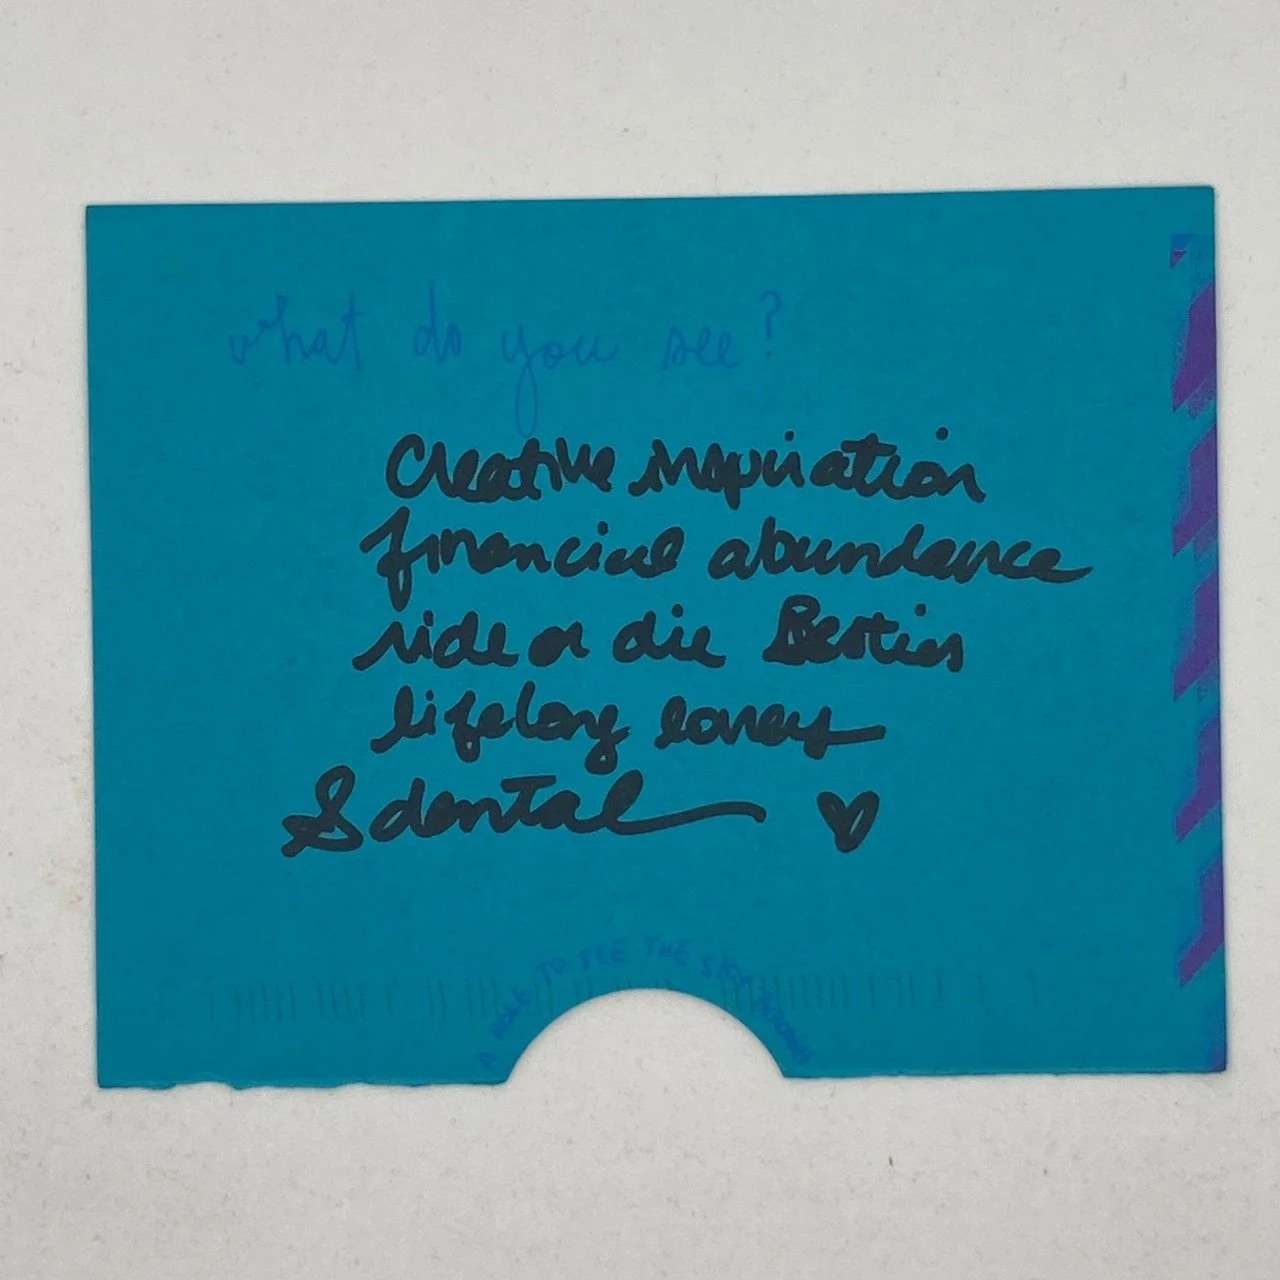 what do you see?
Creative inspiration
financial abundance
ride or die Besties
lifelong lovers
& dental ♥
A HOLE TO SEE THE SKY THROUGH